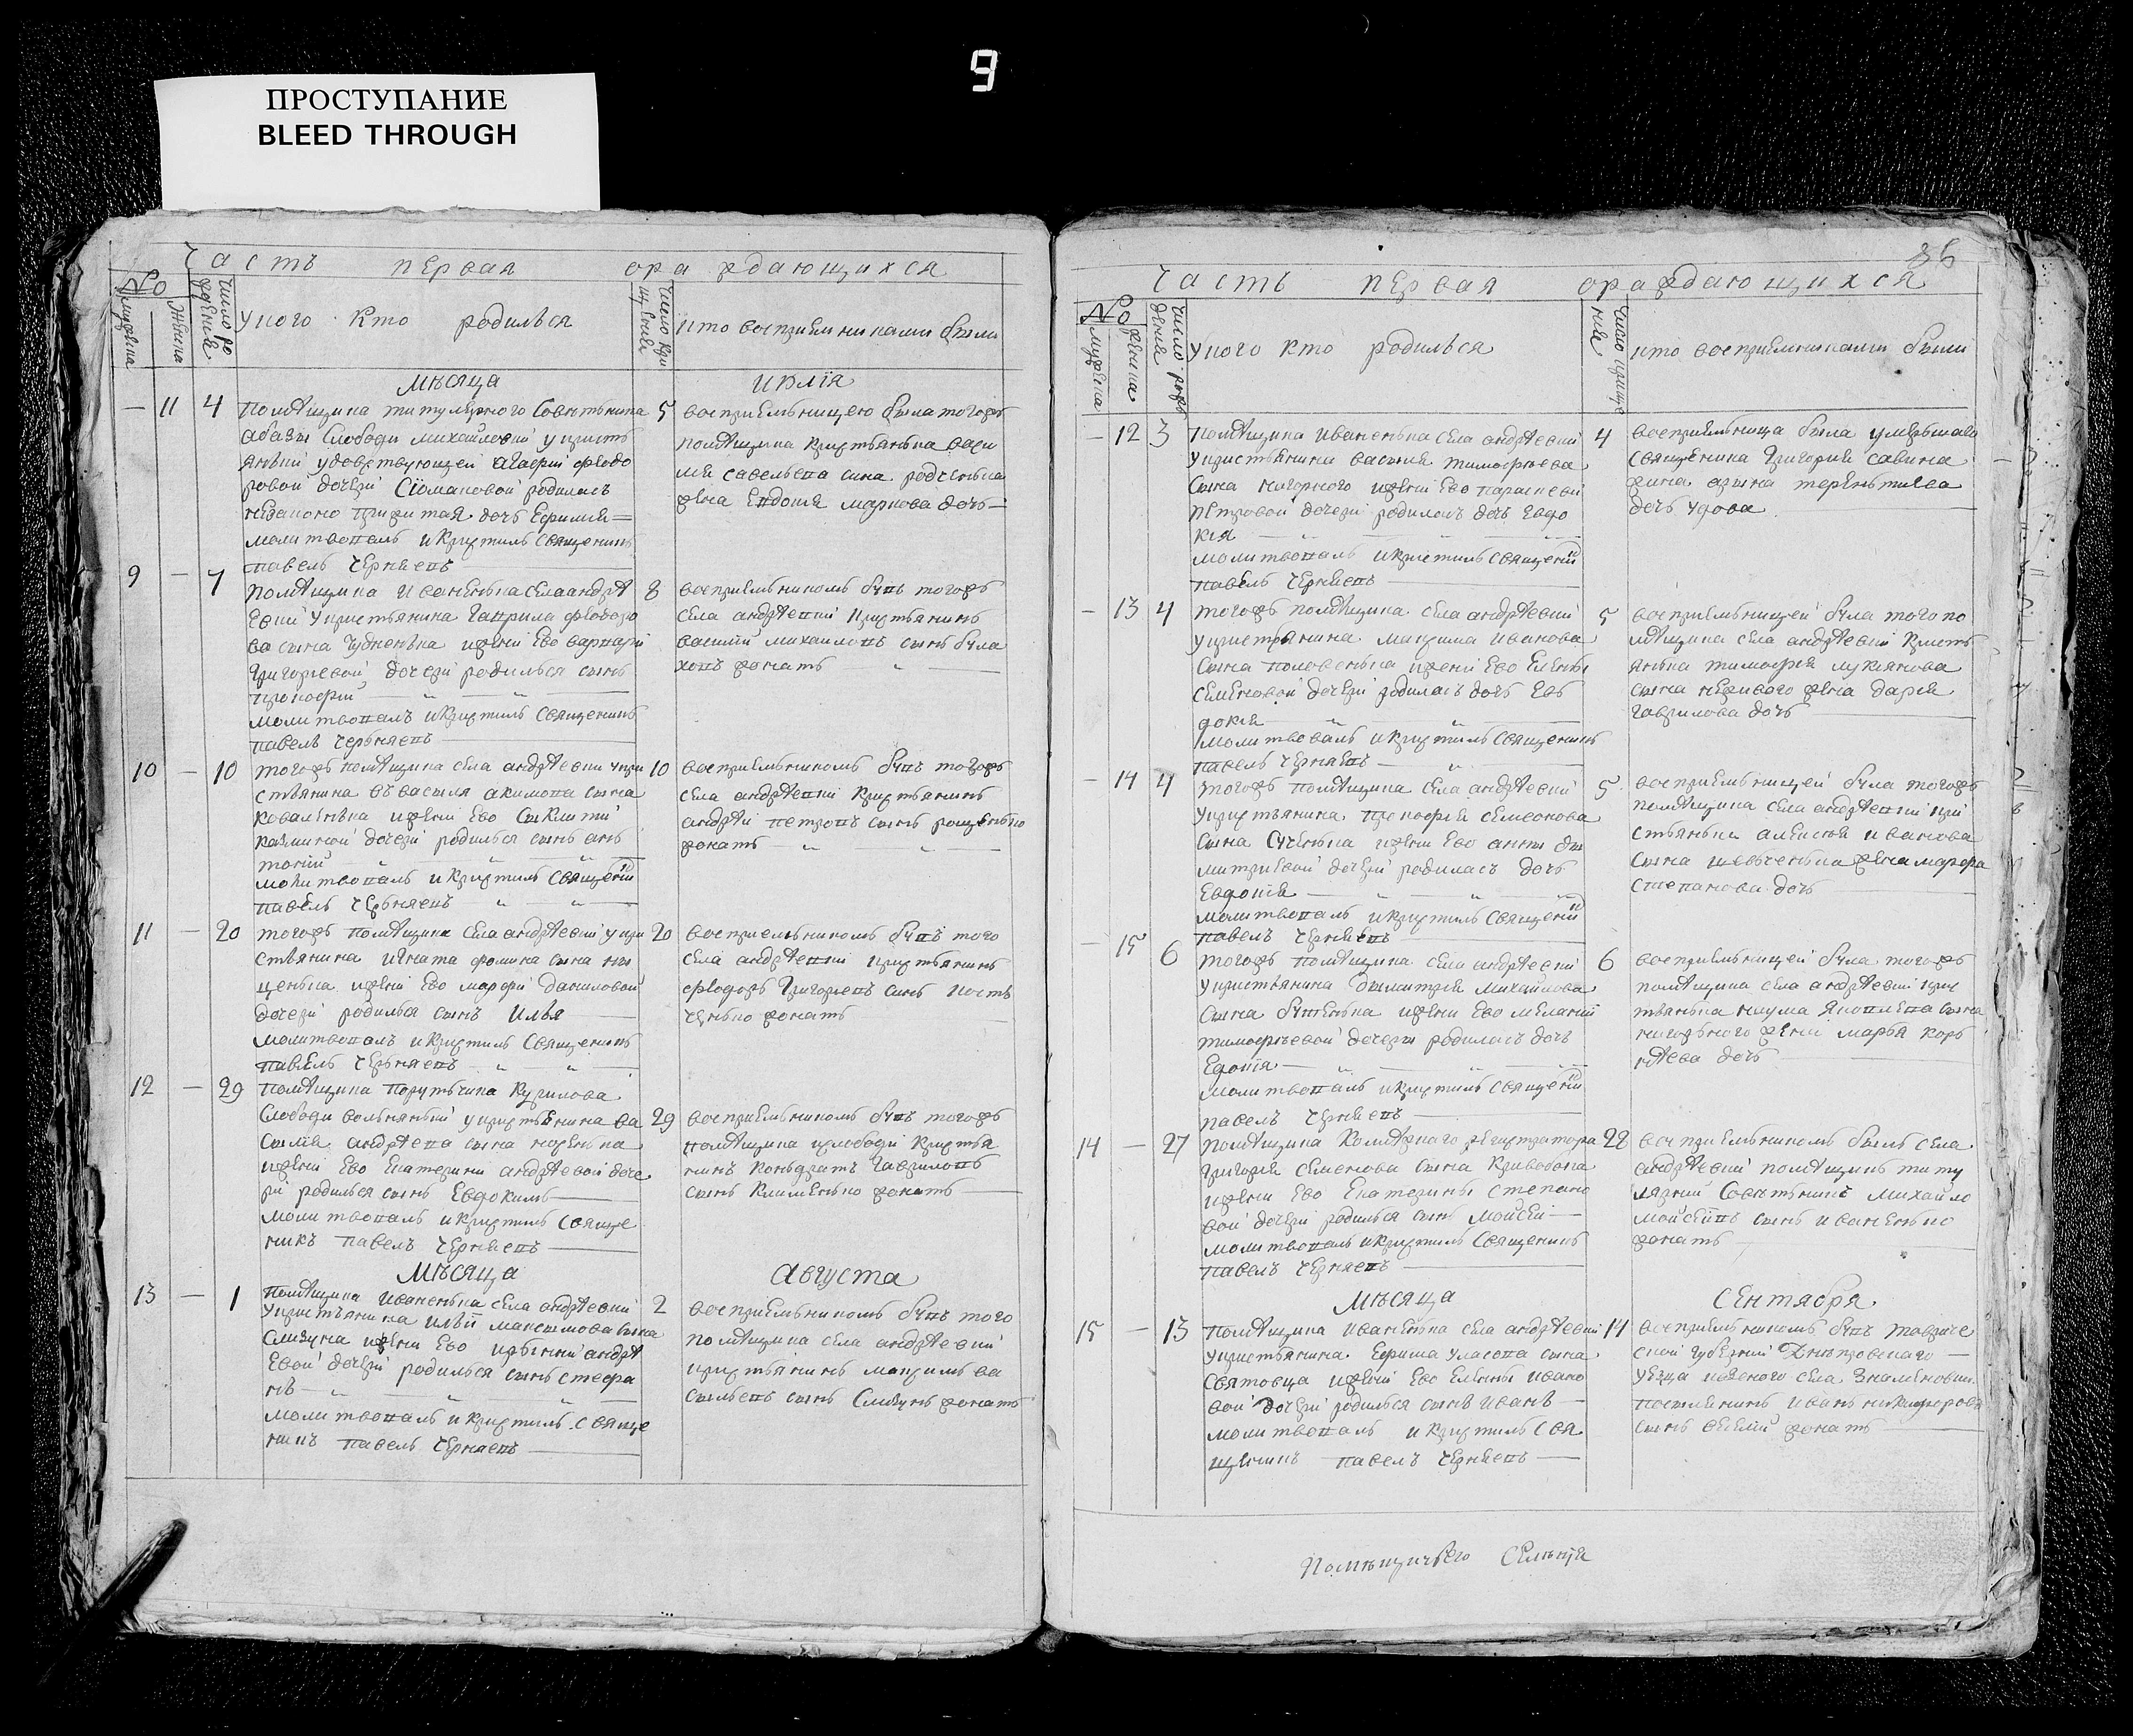 9
ПРОСТУПАНИЕ
BLEED THROUGH
Часть первая о раждающихся
No
Мужеска
Женска
число рождения
У кого кто родился
число крищения
кто восприемниками были
Мѣсяца Июлія
— 11 4
помѣщика титулярного Советьника
Абазы Слободи Михайловки у кристь
янъки удовствующей Агафіи Федо
ровой дочери родилась
незаконо прижитая дочь Ефимия
молитвовалъ и кристилъ священикъ
павелъ Черняевъ
5
восприемьницею была тогожъ
помѣщика кристьянька васи
ля савельева сина
жена Евдокия маркова дочь
9 — 7
помѣщика Иваненька села андрѣ
евки У кристьянина Гаврила Федоро
ва сына Чудненька и жени Ево варвари
Григорьевой дочери родилься синъ
прокофий
молитвовалъ и кристилъ священикъ
павелъ Черьняевъ
8
восприемьникомъ бувъ тогожъ
села андрѣевки кристьянинъ
василий михаиловъ синъ
женатъ
10 — 10
тогожъ помѣщика села андрѣевки у кри
стьянина василя акимова сына
коваленька и жени Ево
дочери родилься синъ анъ
тоний
молитвовалъ и кристилъ священикъ
павелъ Черьняевъ
10
восприемьникомъ бувъ тогожъ
села андрѣевки кристьянинъ
андрѣй петровъ синъ
женатъ
11 — 20
тогожъ помѣщика села андрѣевки у кри
стьянина игната фомина сына
ценька и жени Ево марфи даниловой
дочери родилься синъ Илья
молитвовалъ и кристилъ священикъ
павелъ Черьняевъ
20
восприемьникомъ бувъ того
села андрѣевки кристьянинъ
федоръ Григорьевъ синъ кость
ценько женатъ
12 — 29
помѣщика порутьчика Курилова
Слободи вольнянъки у кристьянина ва
силия андрѣева сина
и жени Ево Екатерини андрѣевой доче
ри родилься синъ Евдокимъ
молитвовалъ и кристилъ свяще
никъ павелъ Черняевъ
29
восприемьникомъ бувъ тогожъ
помѣщика и слободи кристья
нинъ Коньдратъ Гавриловъ
синъ Клименько женатъ
Мѣсяца Августа
13 — 1
помѣщика Иваненька села андрѣевки
У кристьянина Ильи максимова сына
Слизуна и жени Ево андрѣ
евой дочери родилься синъ стефа
нъ
молитвовалъ и кристилъ свяще
никъ павелъ Черняевъ
2
восприемьникомъ бувъ того
помѣщика села андрѣевки
кристьянинъ максимъ ва
сильевъ синъ Слизунъ женатъ
36
Часть первая о раждающихся
No
мужеска
женска
число рождения
У кого кто родилься
число крищения
кто восприемниками были
— 12 3
помѣщика Иваненька села андрѣевки
У кристьянина василия тимофеева
сына нагорного и жени Ево параскеви
петровой дочери родилась дочь Евдо
кия
молитвовалъ и кристилъ священикъ
павелъ Черняевъ
4
восприемьница была умершаго
священика Григория савина
жина терентиева
дочь удова
— 13 4
тогожъ помѣщика села андрѣевки
у кристьянина максима иванова
сына половенька и жени Ево Елени
семеновой дочери родилась дочь Евъ
докия
молитвовалъ и кристилъ священикъ
павелъ Черняевъ
5
восприемьницей була того по
мѣщика села андрѣевки кристь
янька тимофея лукиянова
сына жена дария
гаврилова дочь
— 14 4
тогожъ помѣщика села андрѣевки
у кристьянина прокофия семеонова
сына и жени Ево анни ди
митриевой дочери родилась дочь
Евдокия
молитвовалъ и кристилъ священикъ
павелъ Черняевъ
5
восприемьницей була тогожъ
помѣщика села андрѣевки кри
стьяньки алексия иванова
сына шевченька жена марфа
степанова дочь
— 15 6
тогожъ помѣщика села андрѣевки
у кристьянина дьмитрия михайлова
сына бутенька и жени Ево мелании
тимофеьевой дочери родилась дочь
Едокия
молитвовалъ и кристилъ священикъ
павелъ Черняевъ
6
восприемьницей була тогожъ
помѣщика села андрѣевки крис
тьянька наума Яковлева сына
нагорьного жени марья корь
нѣева дочь
14 — 27
помѣщика Колѣжнаго регистратора
Григория семенова сына Кривобока
и жени Ево Екатерины степано
вой дочери родилься синъ Мойсей
молитвовалъ и кристилъ священикъ
павелъ Черняевъ
28
восприемьникомъ былъ села
андрѣевки помѣщикъ титу
лярний Совѣтникъ михайло
мойсеивъ синъ иваненько
женатъ
Мѣсяца Сентября
15 — 13
помѣщика Иваненька села андрѣевки
у кристьянина Ефима уласова сына
святовца и жени Ево Елени ивано
вой дочери родилься синъ Иванъ
молитвовалъ и кристилъ свя
щеникъ павелъ Черняевъ
14
восприемьникомъ бувъ тавриче
ской губернии Днѣпровскаго
уезда казеного села Знаменовки
поселянинъ иванъ никифоровъ
синъ женатъ
Помѣщичьего Селенія